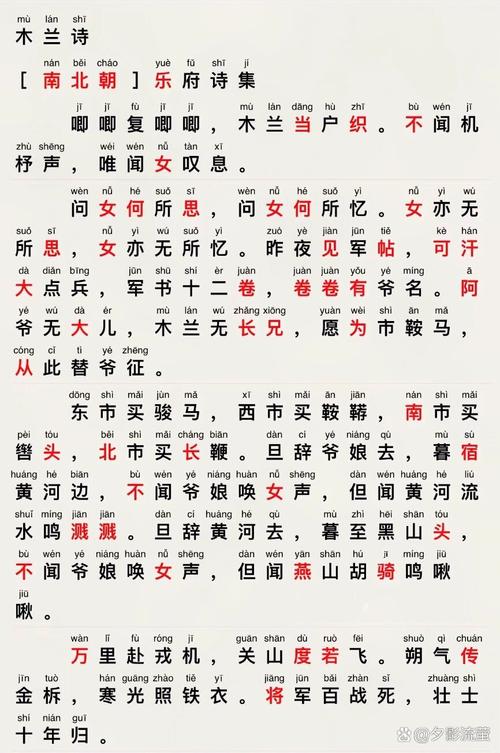 mù lán shī
木兰诗
nán běi cháo yuè fǔ shī jí
[南北朝]乐府诗集
jī jī fù jī jī mù lán dāng hù zhī bù wén jī
唧唧复唧唧，木兰当户织。不闻机
zhù shēng wéi wén nǚ tàn xī
杼声，唯闻女叹息。
wèn nǚ hé suǒ sī wèn nǚ hé suǒ yì nǚ yì wú
问女何所思，问女何所忆。女亦无
suǒ sī nǚ yì wú suǒ yì zuó yè jiàn jūn tiě kè hán
所思，女亦无所忆。昨夜见军帖，可汗
dà diǎn bīng jūn shū shí èr juàn juàn juàn yǒu yé míng ā
大点兵，军书十二卷，卷卷有爷名。阿
yé wú dà ér mù lán wú zhǎng xiōng yuàn wéi shì ān mǎ
爷无大儿，木兰无长兄，愿为市鞍马，
cóng cǐ tì yé zhēng
从此替爷征。
dōng shì mǎi jùn mǎ xī shì mǎi ān jiān nán shì mǎi
东市买骏马，西市买鞍鞯，南市买
pèi tóu běi shì mǎi cháng biān dàn cí yé niáng qù mù sù
辔头，北市买长鞭。旦辞爷娘去，暮宿
huáng hé biān bù wén yé niáng huàn nǚ shēng dàn wén huáng hé liú
黄河边，不闻爷娘唤女声，但闻黄河流
shuǐ míng jiān jiān dàn cí huáng hé qù mù zhì hēi shān tóu
水鸣溅溅。旦辞黄河去，暮至黑山头，
bù wén yé niáng huàn nǚ shēng dàn wén yān shān hú jì míng jiū
不闻爷娘唤女声，但闻燕山胡骑鸣啾
jiū
啾。
wàn lǐ fù róng jī guān shān dù ruò fēi shuò qì chuán
万里赴戎机，关山度若飞。朔气传
jīn tuò hán guāng zhào tiě yī jiāng jūn bǎi zhàn sǐ zhuàng shì
金柝，寒光照铁衣。将军百战死，壮士
shí nián guī
十年归。
@夕影流萤